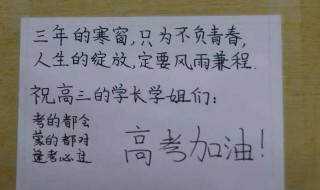 三年的寒窗,只为不负青春,
人生的绽放,定要风雨兼程.
祝高三的学长学姐们:
考的都会
蒙的都对
逢考必过
高考加油!